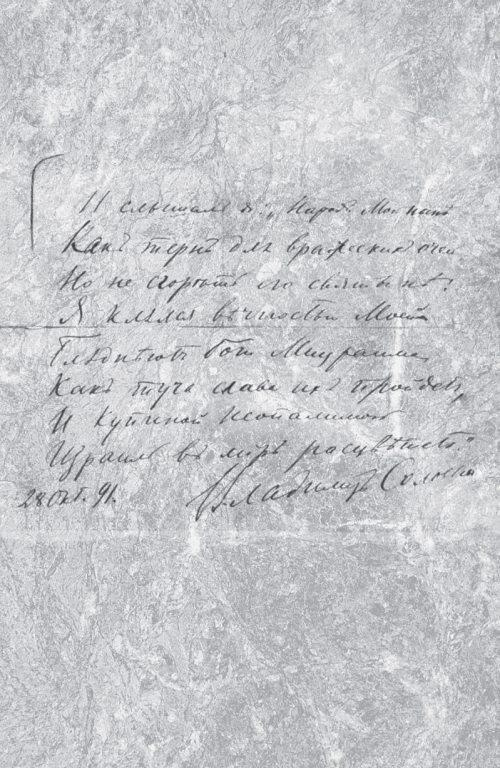 И слышалъ я: „Народъ Мой нынѣ
Какъ тернъ для вражескихъ очей
Но не сгорѣть его святынѣ:
Я клялся вѣчностью Моей
Блѣднѣютъ боги Мицраима,
Какъ туча слава ихъ пройдетъ,
И купиной неопалимою
Израиль въ мірѣ расцвѣтетъ."
28 Окт. 91. Владиміръ Соловьевъ